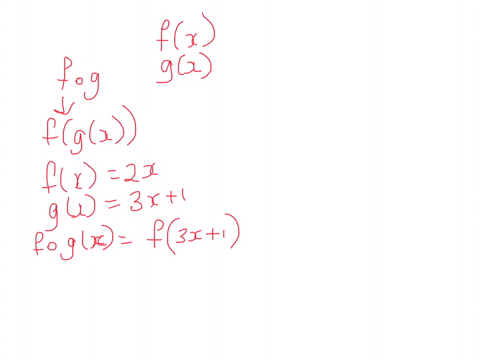 f(x)
g(x)
fog
↓
f(g(x))
f(x) = 2x
g(x) = 3x+1
fog(x) = f(3x+1)